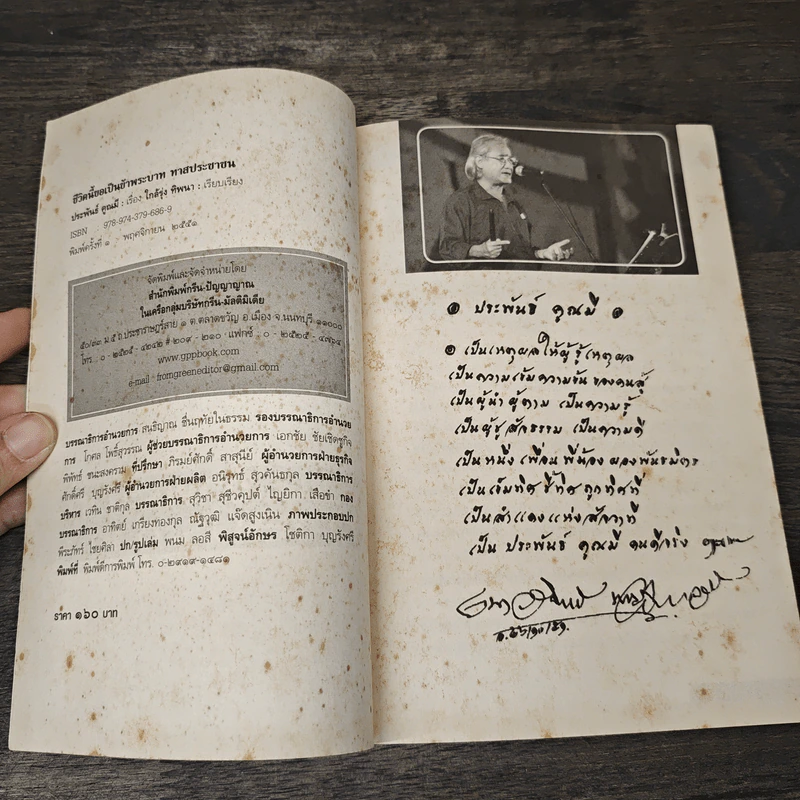 ชีวิตนี้ขอเป็นข้าพระบาท ทาสประชาชน
ประพันธ์ คูณมี : เรื่อง ใกล้รุ่ง ทิพนา : เรียบเรียง
ISBN 978-974-379-686-9
พิมพ์ครั้งที่ ๑ พฤศจิกายน ๒๕๕๑
จัดพิมพ์และจัดจำหน่ายโดย
สำนักพิมพ์กรีน-ปัญญาญาณ
ในเครือกลุ่มบริษัทกรีน-มัลติมีเดีย
๕๐/๓๓ ม.๕ ถ.ประชาราษฎร์สาย ๑ ต.ตลาดขวัญ อ.เมือง จ.นนทบุรี ๑๑๐๐๐
โทร. ๐-๒๕๒๕-๔๒๔๒ # ๒๐๙-๒๑๐ แฟกซ์.
www.gppbook.com
e-mail : fromgreeneditor@gmail.com
บรรณาธิการอำนวยการ สนธิญาณ ชื่นฤทัยในธรรม รองบรรณาธิการอำนวย
การ โกศล โพธิ์สุวรรณ ผู้ช่วยบรรณาธิการอำนวยการ เอกชัย ชัยเชิดชูกิจ
พิพัทธ์ ชนะสงคราม ที่ปรึกษา ภิรมย์ศักดิ์ สาสุนีย์ ผู้อำนวยการฝ่ายธุรกิจ
ศักดิ์ศรี บุญรังศรี ผู้อำนวยการฝ่ายผลิต อนิรุทธ์ สุวคันธกุล บรรณาธิการ
บริหาร เวทิน ชาติกุล บรรณาธิการ สุวิชา สุชีวคุปต์ ไญยิกา เสือขำ กอง
บรรณาธิการ อาทิตย์ เกรียงทองกุล ณัฐวุฒิ แจ๊ดสูงเนิน ภาพประกอบปก
พีระภัทร์ ไชยศิลา ปก/รูปเล่ม พนม ลอสี พิสูจน์อักษร โชติกา บุญรังศรี
พิมพ์ที่ พิมพ์ดีการพิมพ์ โทร. ๐-๒๙๑๙-๑๔๘๑
ราคา ๑๖๐ บาท
๏ ประพันธ์ คูณมี ๏
๏ เป็นเหตุผลให้ผู้รู้เหตุผล
เป็นความเข้มความข้นของคนสู้
เป็นผู้นำ ผู้ตาม เป็นความรู้
เป็นผู้ชูสัจธรรม เป็นความดี
เป็นหนึ่งเพื่อนพี่น้องผองพันธมิตร
เป็นเข็มทิศชี้ทิศถูกทิศที่
เป็นสำแดงแห่งสัจวาที
เป็น ประพันธ์ คูณมี คนดีจริง